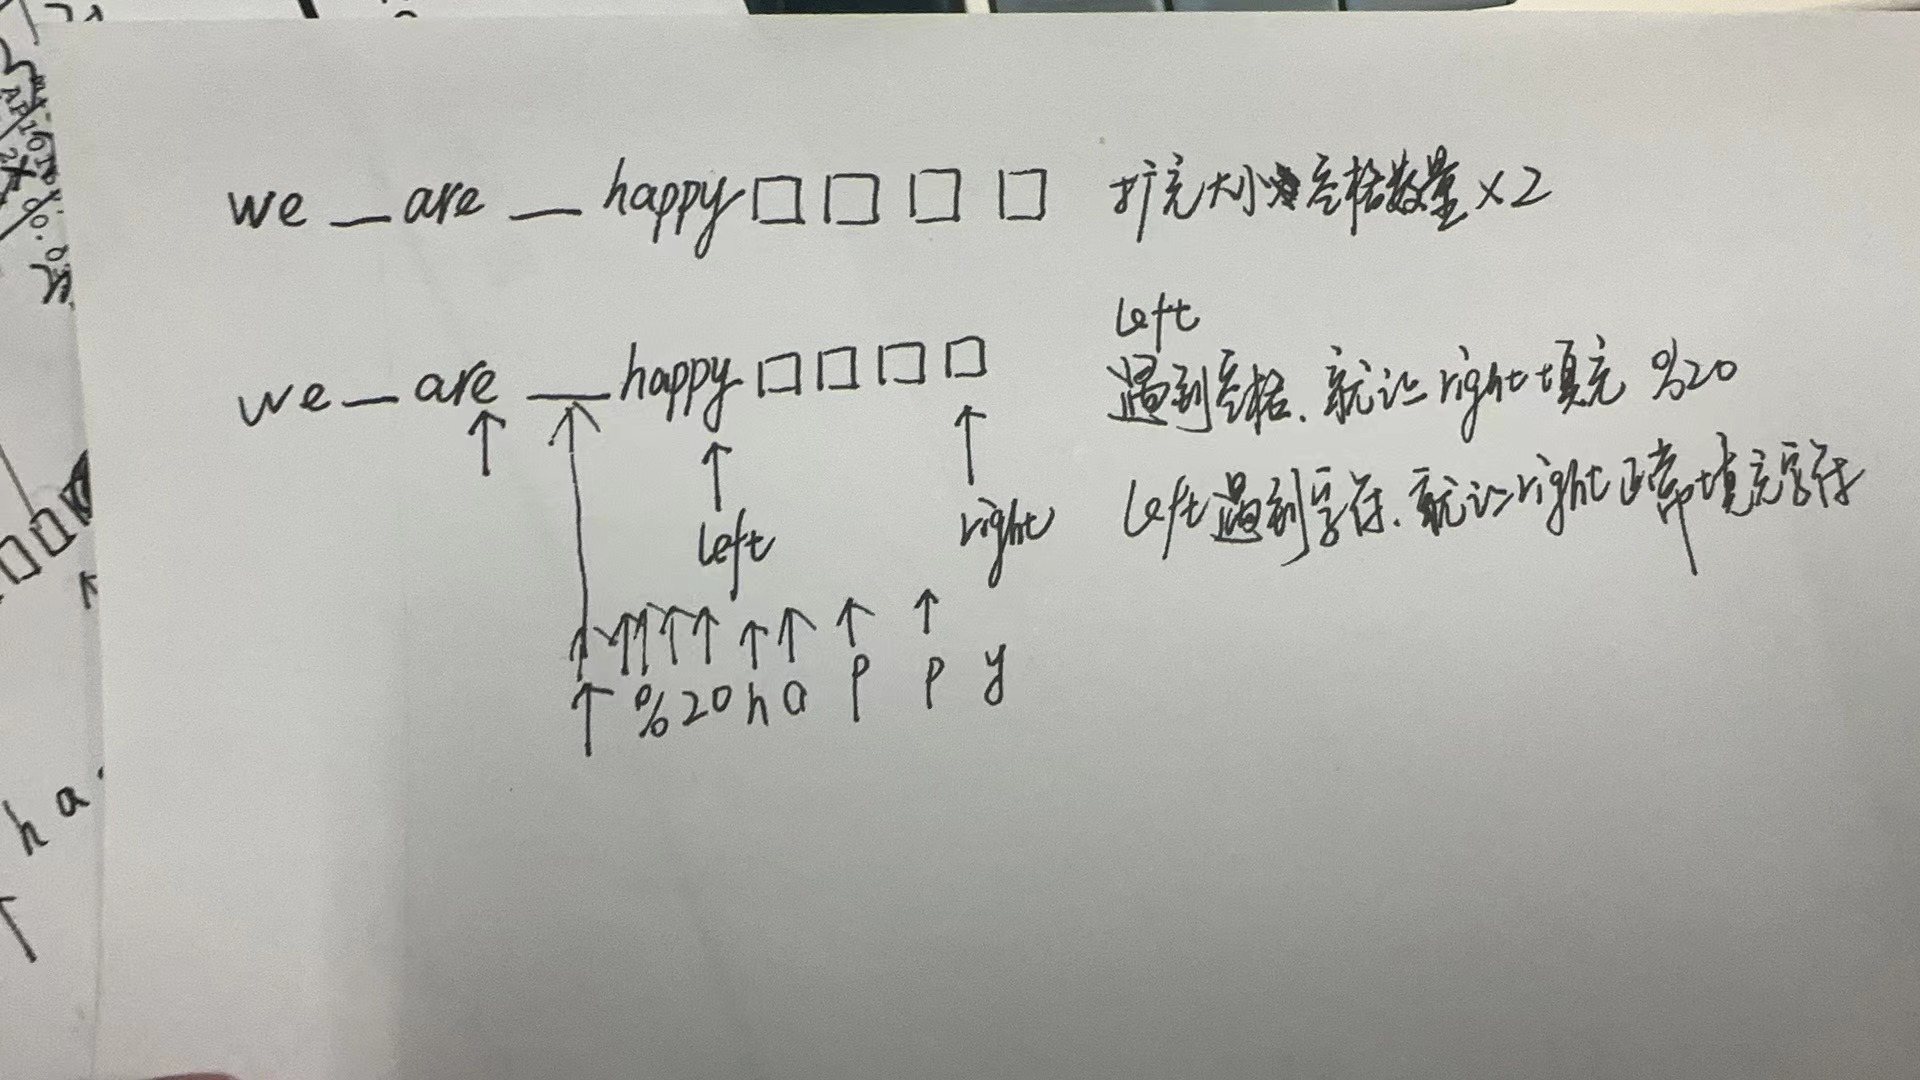 we _ are _ happy□□□□ 扩充大小空格数量×2
left
we _ are _ happy□□□□ 遇到空格.就让right填充 %20
left遇到字符.就让right正常填充字符
left right
%20 h a p p y
h a